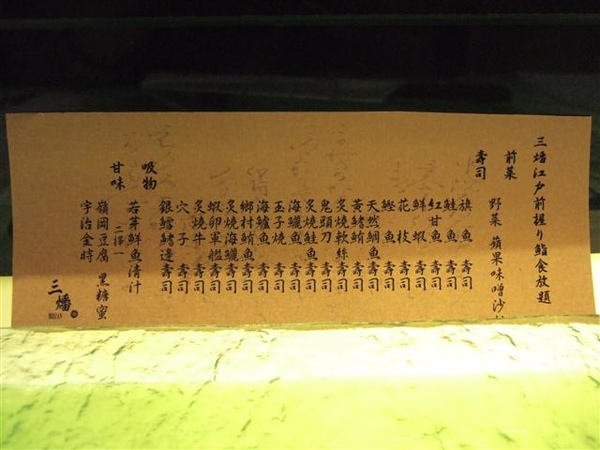 三燔江戶前握り鮨食放題
前菜
野菜 蘋果味噌沙
壽司
旗魚壽司
鮭魚壽司
紅甘魚壽司
鮮蝦壽司
花枝壽司
鰹魚壽司
天然鯛魚壽司
黃鰭鮪壽司
炙燒軟絲壽司
鬼頭刀壽司
炙燒鮭魚壽司
海鱺魚壽司
玉子燒壽司
海鱸魚壽司
鄉村鮪魚壽司
炙燒海鱺壽司
蝦卵軍艦壽司
炙燒牛壽司
穴子壽司
銀鱈鰭邊壽司
吸物
若芽鮮魚清汁
甘味
二擇一
嶺岡豆腐 黑糖蜜
宇治金時
三燔